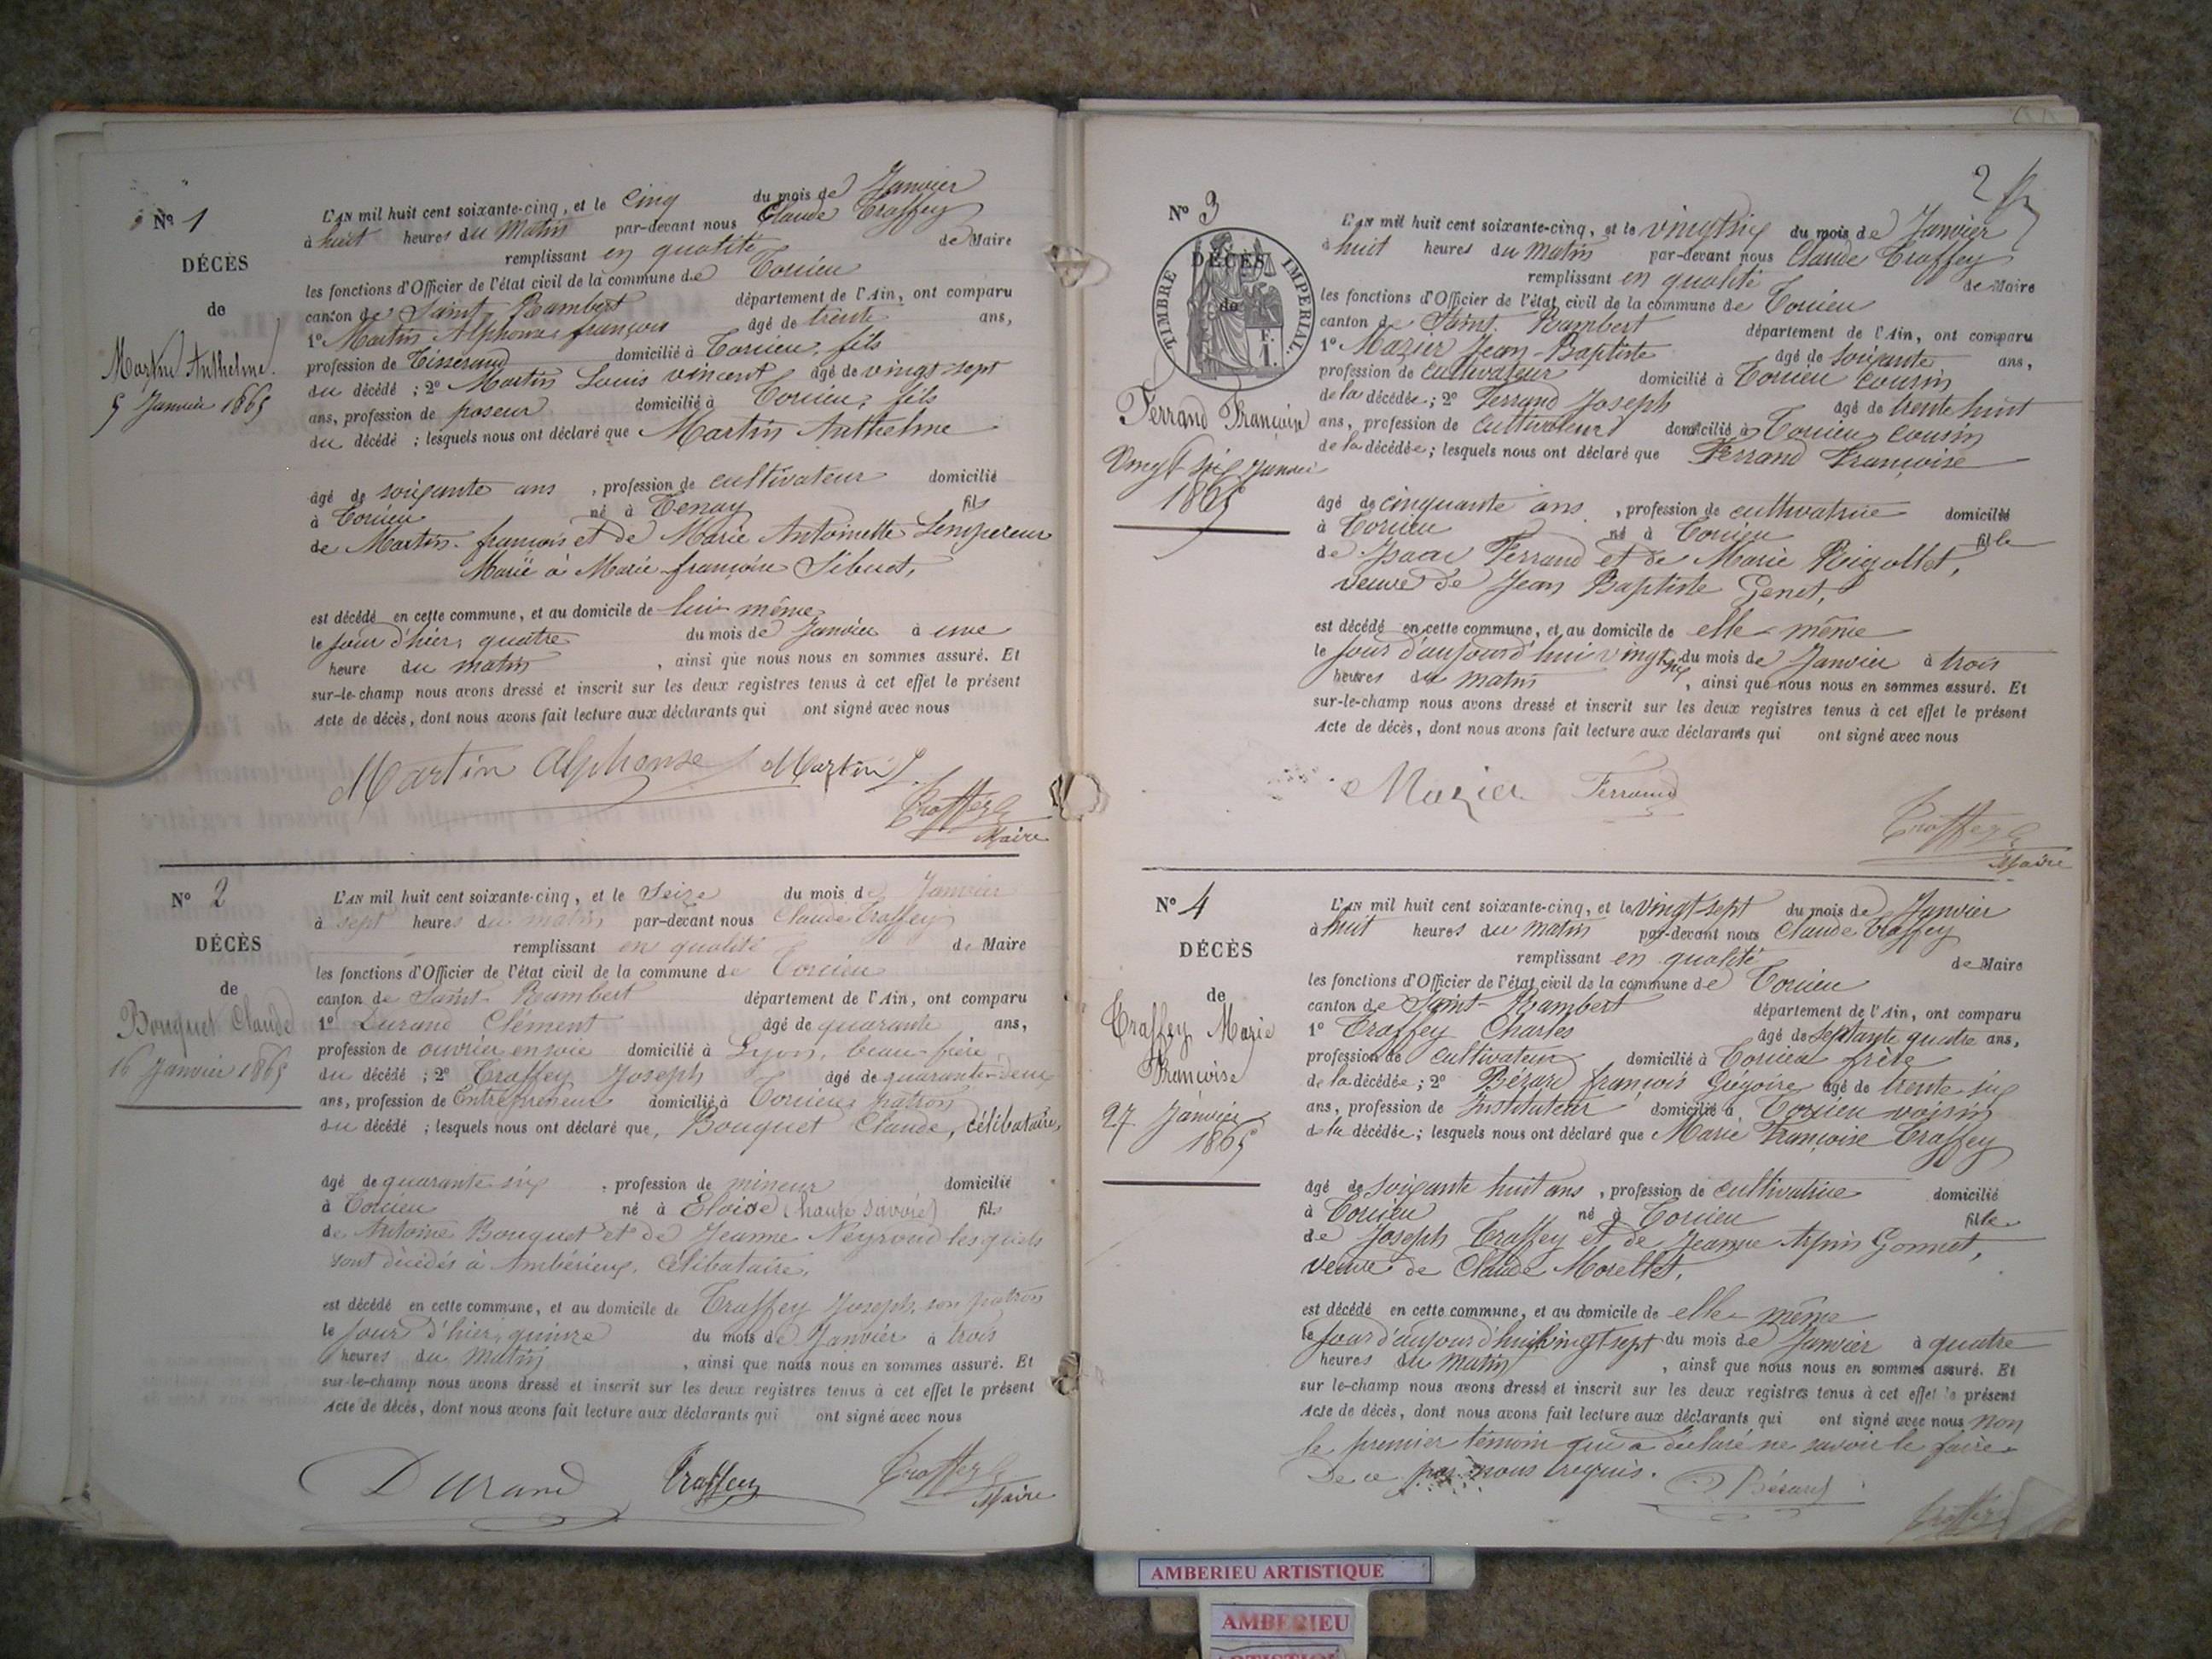 N° 1
DÉCÈS
de
Martin Anthelme
5 Janvier 1865
L'AN mil huit cent soixante-cinq, et le cinq du mois de Janvier
à huit heures du matin par-devant nous Claude Traffey
remplissant en qualité de Maire
les fonctions d'Officier de l'état civil de la commune de Torcieu
canton de Saint-Rambert département de l'Ain, ont comparu
1° Martin Alphonse françois âgé de trente ans,
profession de Tisserand domicilié à Torcieu, fils
du décédé ; 2° Martin Louis vincent âgé de vingt-sept
ans, profession de poseur domicilié à Torcieu, fils
du décédé ; lesquels nous ont déclaré que Martin Anthelme
âgé de soixante ans , profession de cultivateur domicilié
à Torcieu né à Tenay fils
de Martin françois et de Marie Antoinette Lempereur
Marié à Marie françoise Sibuet,
est décédé en cette commune, et au domicile de lui-même
le jour d'hier, quatre du mois de Janvier à une
heure du matin , ainsi que nous nous en sommes assuré. Et
sur-le-champ nous avons dressé et inscrit sur les deux registres tenus à cet effet le présent
Acte de décès, dont nous avons fait lecture aux déclarants qui ont signé avec nous
Martin Alphonse Martin L.
Traffey C
Maire
N° 2
DÉCÈS
de
Bouquet Claude
16 Janvier 1865
L'AN mil huit cent soixante-cinq, et le Seize du mois de Janvier
à sept heures du matin par-devant nous Claude Traffey
remplissant en qualité de Maire
les fonctions d'Officier de l'état civil de la commune de Torcieu
canton de Saint-Rambert département de l'Ain, ont comparu
1° Durand Clément âgé de quarante ans,
profession de ouvrier en soie domicilié à Lyon, beau-frère
du décédé ; 2° Traffey Joseph âgé de quarante-deux
ans, profession de Entrepreneur domicilié à Torcieu, patron
du décédé ; lesquels nous ont déclaré que, Bouquet Claude, célibataire,
âgé de quarante six , profession de mineur domicilié
à Torcieu né à Eloise (haute Savoie) fils
de Antoine Bouquet et de Jeanne Neyroud lesquels
sont décédés à Ambérieux, célibataire,
est décédé en cette commune, et au domicile de Traffey Joseph, son patron
le jour d'hier, quinze du mois de Janvier à trois
heures du matin , ainsi que nous nous en sommes assuré. Et
sur-le-champ nous avons dressé et inscrit sur les deux registres tenus à cet effet le présent
Acte de décès, dont nous avons fait lecture aux déclarants qui ont signé avec nous
Durand Traffey Traffey C
Maire
2
N° 3
TIMBRE IMPERIAL
DÉCÈS
de
Ferrand Françoise
Vingt six Janvier
1865
L'AN mil huit cent soixante-cinq, et le vingt six du mois de Janvier
à huit heures du matin par-devant nous Claude Traffey
remplissant en qualité de Maire
les fonctions d'Officier de l'état civil de la commune de Torcieu
canton de Saint-Rambert département de l'Ain, ont comparu
1° Mazier Jean-Baptiste âgé de soixante ans,
profession de cultivateur domicilié à Torcieu cousin
de la décédée ; 2° Ferrand Joseph âgé de trente huit
ans, profession de cultivateur domicilié à Torcieu, cousin
de la décédée ; lesquels nous ont déclaré que Ferrand Françoise
âgé de cinquante ans , profession de cultivatrice domicilié
à Torcieu né à Torcieu fille
de Isaac Ferrand et de Marie Rigollet,
veuve de Jean Baptiste Genet,
est décédé en cette commune, et au domicile de elle-même
le jour d'aujourd'hui vingt six du mois de Janvier à trois
heures du matin , ainsi que nous nous en sommes assuré. Et
sur-le-champ nous avons dressé et inscrit sur les deux registres tenus à cet effet le présent
Acte de décès, dont nous avons fait lecture aux déclarants qui ont signé avec nous
Mazier Ferrand
Traffey C
Maire
N° 4
DÉCÈS
de
Traffey Marie
Françoise
27 Janvier
1865
L'AN mil huit cent soixante-cinq, et le vingt-sept du mois de Janvier
à huit heures du matin par-devant nous Claude Traffey
remplissant en qualité de Maire
les fonctions d'Officier de l'état civil de la commune de Torcieu
canton de Saint-Rambert département de l'Ain, ont comparu
1° Traffey Charles âgé de septante quatre ans,
profession de cultivateur domicilié à Torcieu frère
de la décédée ; 2° Bérard françois Grégoire âgé de trente six
ans, profession de Instituteur domicilié à Torcieu voisin
de la décédée ; lesquels nous ont déclaré que Marie Françoise Traffey
âgé de soixante huit ans , profession de cultivatrice domicilié
à Torcieu né à Torcieu fille
de Joseph Traffey et de Jeanne Gonnet,
veuve de Claude Morellet,
est décédé en cette commune, et au domicile de elle-même
le jour d'aujourd'hui vingt sept du mois de Janvier à quatre
heures du matin , ainsi que nous nous en sommes assuré. Et
sur-le-champ nous avons dressé et inscrit sur les deux registres tenus à cet effet le présent
Acte de décès, dont nous avons fait lecture aux déclarants qui ont signé avec nous non
le premier témoin qui a déclaré ne savoir le faire
De ce par nous requis.
Bérard
Traffey
AMBERIEU ARTISTIQUE
AMBERIEU
ARTISTIQUE